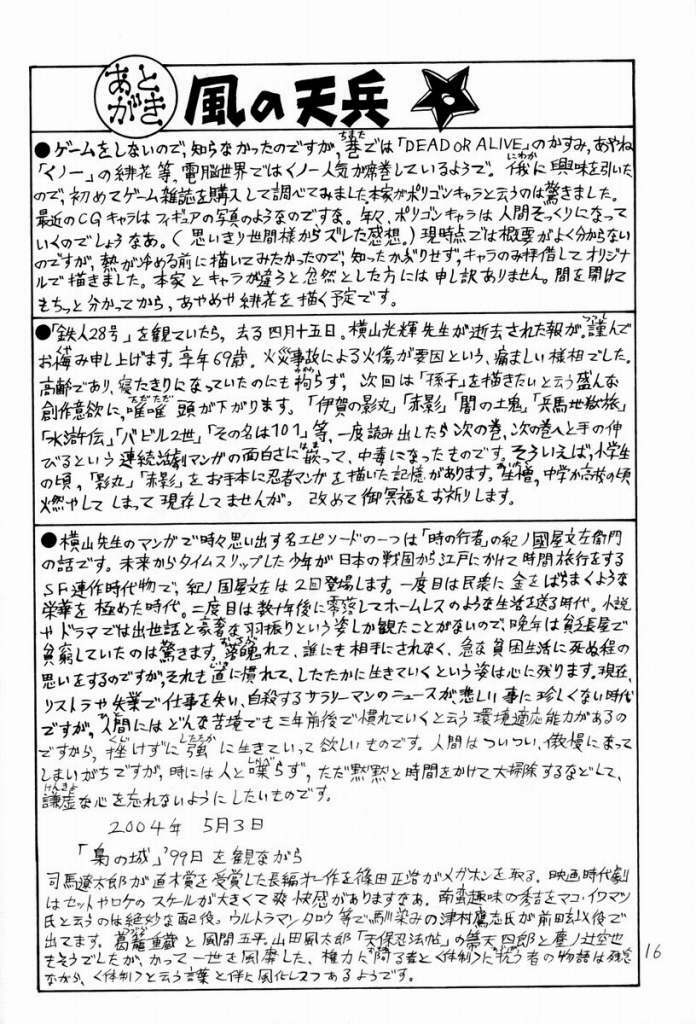 あとがき 風の天兵
●ゲームをしないので、知らなかったのですが、巷では「DEAD OR ALIVE」のかすみ、あやね
「くノ一」の緋花等、電脳世界ではくノ一人気が席巻しているようで。俄に興味を引いた
ので、初めてゲーム雑誌を購入して調べてみました。本家がポリゴンキャラと云うのは驚きました。
最近のCGキャラはフィギュアの写真のようなのですな。年々、ポリゴンキャラは人間そっくりになって
いくのでしょうなあ。(思いきり世間様からズレた感想。)現時点では概要がよく分からない
のですが、熱が冷める前に描いてみたかったので、知ったかぶりせず、キャラのみ拝借してオリジナ
ルで描きました。本家とキャラが違うと忽然とした方には申し訳ありません。間を開けて
もちっと分かってから、あやめや緋花を描く予定です。
●「鉄人28号」を観ていたら、去る四月十五日。横山光輝先生が逝去された報が。謹んで
お悔み申し上げます。享年69歳。火災事故による火傷が要因という、痛ましい様相でした。
高齢であり、寝たきりになっていたのにも拘らず、次回は「孫子」を描きたいと云う盛んな
創作意欲に、唯唯頭が下がります。「伊賀の影丸」「赤影」「闇の土鬼」「兵馬地獄旅」
「水滸伝」「バビル2世」「その名は101」等、一度読み出したら次の巻、次の巻へと手の伸
びるという連続活劇マンガの面白さに嵌って、中毒になったものです。そういえば、小学生
の頃、「影丸」「赤影」をお手本に忍者マンガを描いた記憶があります。生憎、中学か高校の頃
燃やしてしまって現存してませんが。改めて御冥福をお祈りします。
●横山先生のマンガで時々思い出す名エピソードの一つは「時の行者」の紀ノ國屋文左衛門
の話です。未来からタイムスリップした少年が日本の戦国から江戸にかけて時間旅行をする
SF連作時代物で、紀ノ国屋文左は2回登場します。一度目は民衆に金をばらまくような
栄華を極めた時代。二度目は数十年後に零落してホームレスのような生活を送る時代。小説
やドラマでは出世話と豪奢な羽振りという姿しか観たことがないので、晩年は貧乏長屋で
貧窮していたのは驚きます。落魄れて、誰にも相手にされなく、急な貧困生活に死ぬ程の
思いをするのですが、それも直に慣れて、したたかに生きていくという姿は心に残ります。現在、
リストラや失業で仕事を失い、自殺するサラリーマンのニュースが、悲しい事に珍しくない時代
ですが、人間にはどんな苦境でも三年前後で慣れていくと云う環境適応能力があるの
ですから、挫けずに強に生きていって欲しいものです。人間はついつい、傲慢になって
しまいがちですが、時には人と喋らず、ただ黙黙と時間をかけて大掃除するなどして、
謙虚な心を忘れないようにしたいものです。
2004年 5月3日
「梟の城」'99日を観ながら
司馬遼太郎が直木賞を受賞した長編第一作を篠田正浩がメガホンを取る。映画時代劇
はセットやロケのスケールが大きくて爽快感がありますなあ。南蛮趣味の秀吉をマコ・イワマツ
氏と云うのは絶妙な配役。ウルトラマンタロウ等で馴染みの津村鷹志氏が前田玄以役で
出てます。葛籠重蔵と風間五平。山田風太郎「天保忍法帖」の 天四郎と塵ノ辻空也
もそうでしたが、かつて一世を風靡した、権力に 者と〈体制〉に抗う者の物語は残念
ながら、〈体制〉と云う言葉と伴に風化しつつあるようです。
16